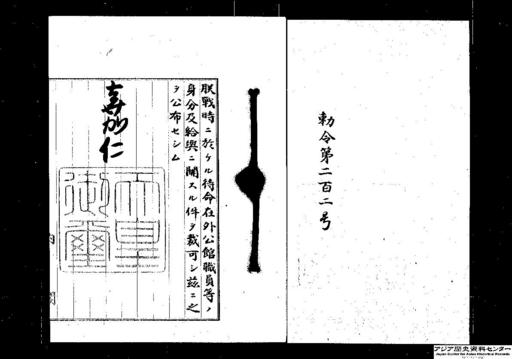 勅令第二百二号
朕戦時ニ於ケル待命在外公館職員等ノ
身分及給与ニ関スル件ヲ裁可シ茲ニ之
ヲ公布セシム
嘉仁
天皇
御璽
内閣
アジア歴史資料センター
Japan Center for Asian Historical Records